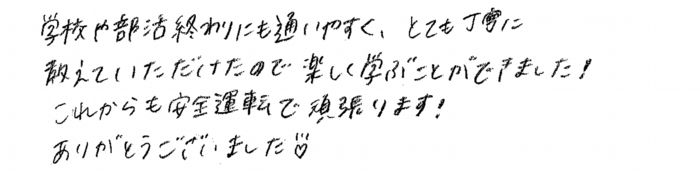 学校や部活終わりにも通いやすく、とても丁寧に
教えていただけたので楽しく学ぶことができました!
これからも安全運転で頑張ります!
ありがとうございました♡